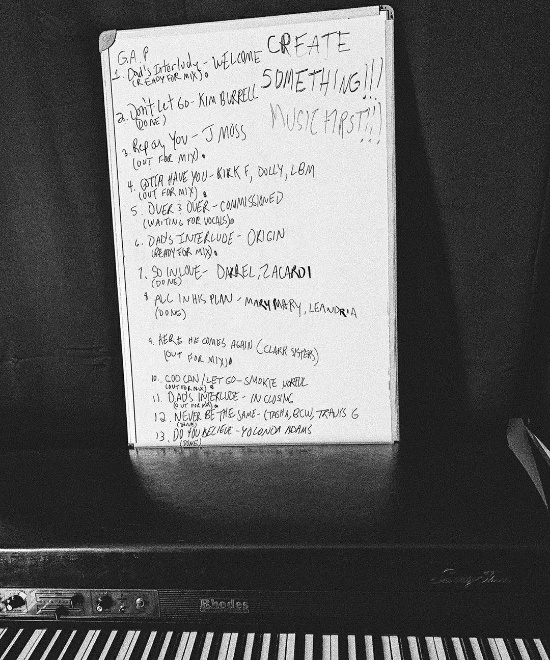 G.A.P
1. Dad's Interlude - WELCOME
(READY FOR MIX).
2. Don't Let Go - KIM BURRELL
(DONE)
3. Repay You - J MOSS
(OUT FOR MIX).
4. GOTTA HAVE YOU - KIRK F, DOLLY, LBM
(OUT FOR MIX).
5. OVER & OVER - COMMISSIONED
(WAITING FOR VOCALS).
6. DAD'S INTERLUDE - ORIGIN
(READY FOR MIX).
7. SO IN LOVE - DARREL, ZACARDI
(DONE)
8 ALL IN HIS PLAN - MARY MARY, LEANDRIA
(DONE)
9. HERE HE COMES AGAIN (CLARK SISTERS)
(OUT FOR MIX).
10. GOD CAN / LET GO - SMOKIE NORFUL
(OUT FOR MIX).
11. DAD'S INTERLUDE - IN CLOSING
(OUT FOR MIX).
12. NEVER BE THE SAME - (TASHA, BCW, TRAVIS G
(DONE)
13. DO YOU BELIEVE - YOLONDA ADAMS
(DONE)
CREATE
SOMETHING!!!
MUSIC FIRST!!!
Rhodes